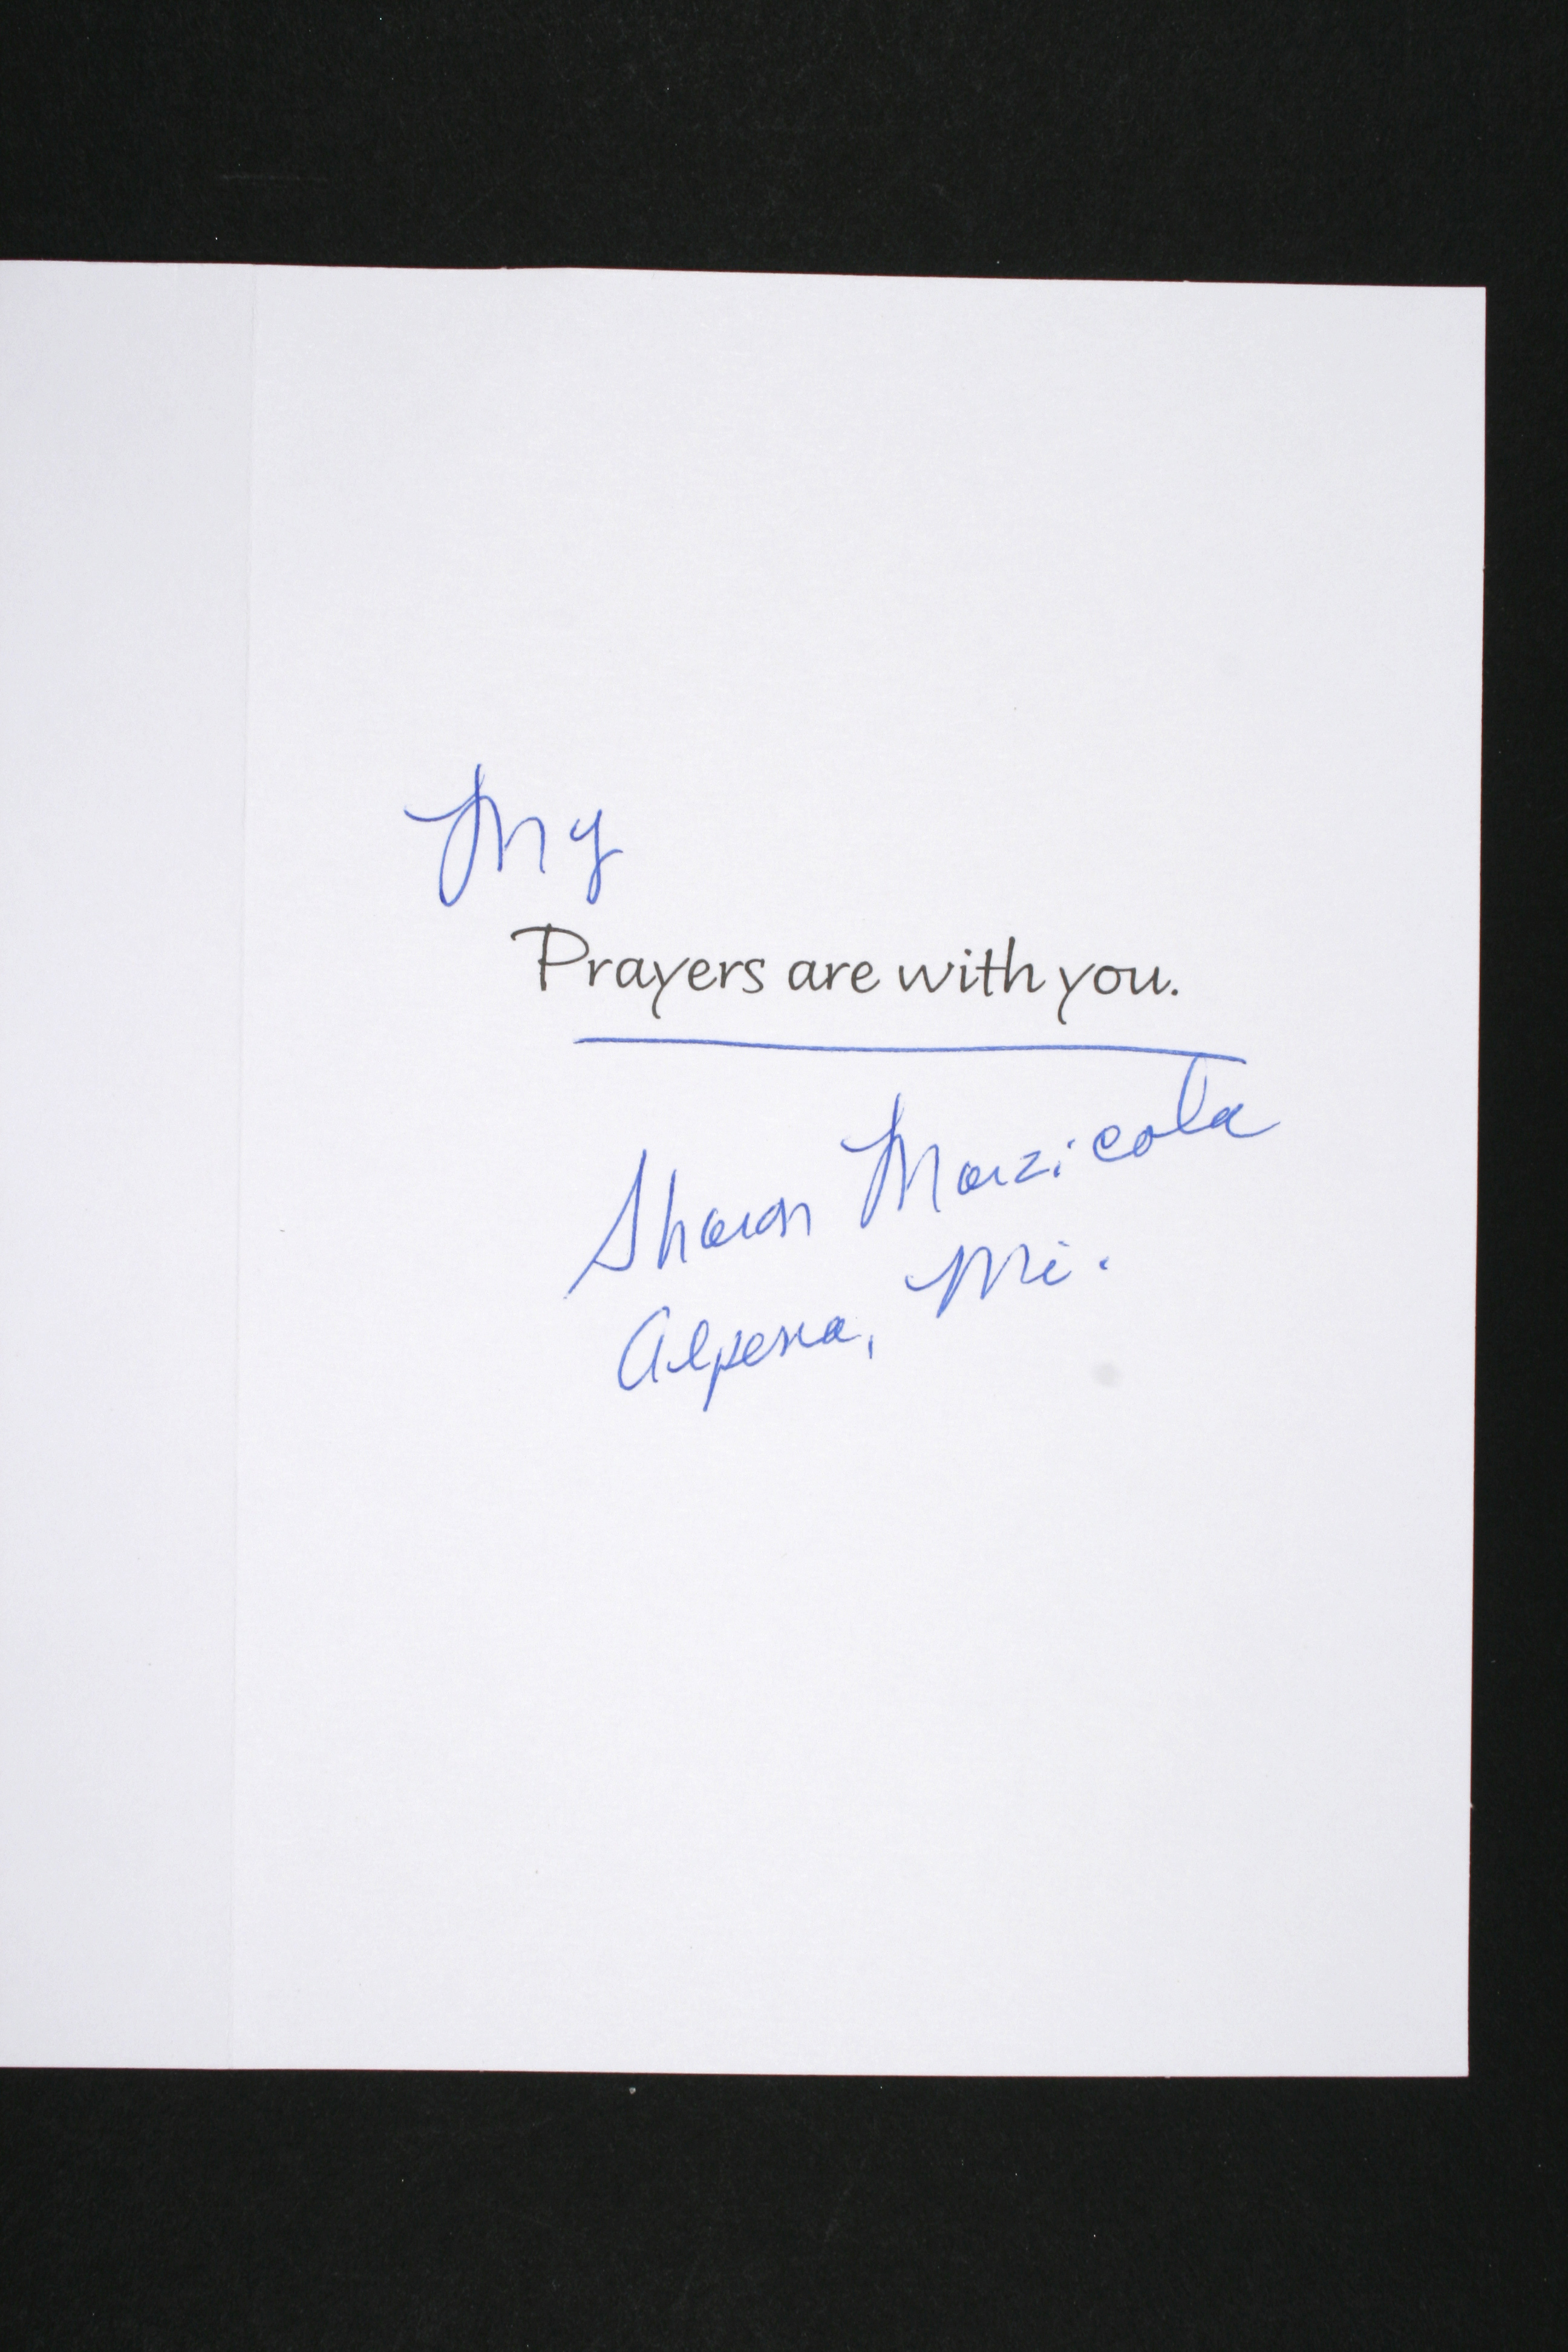 My
Prayers are with you.
Sharon Marzicola
Alpena, Mi.